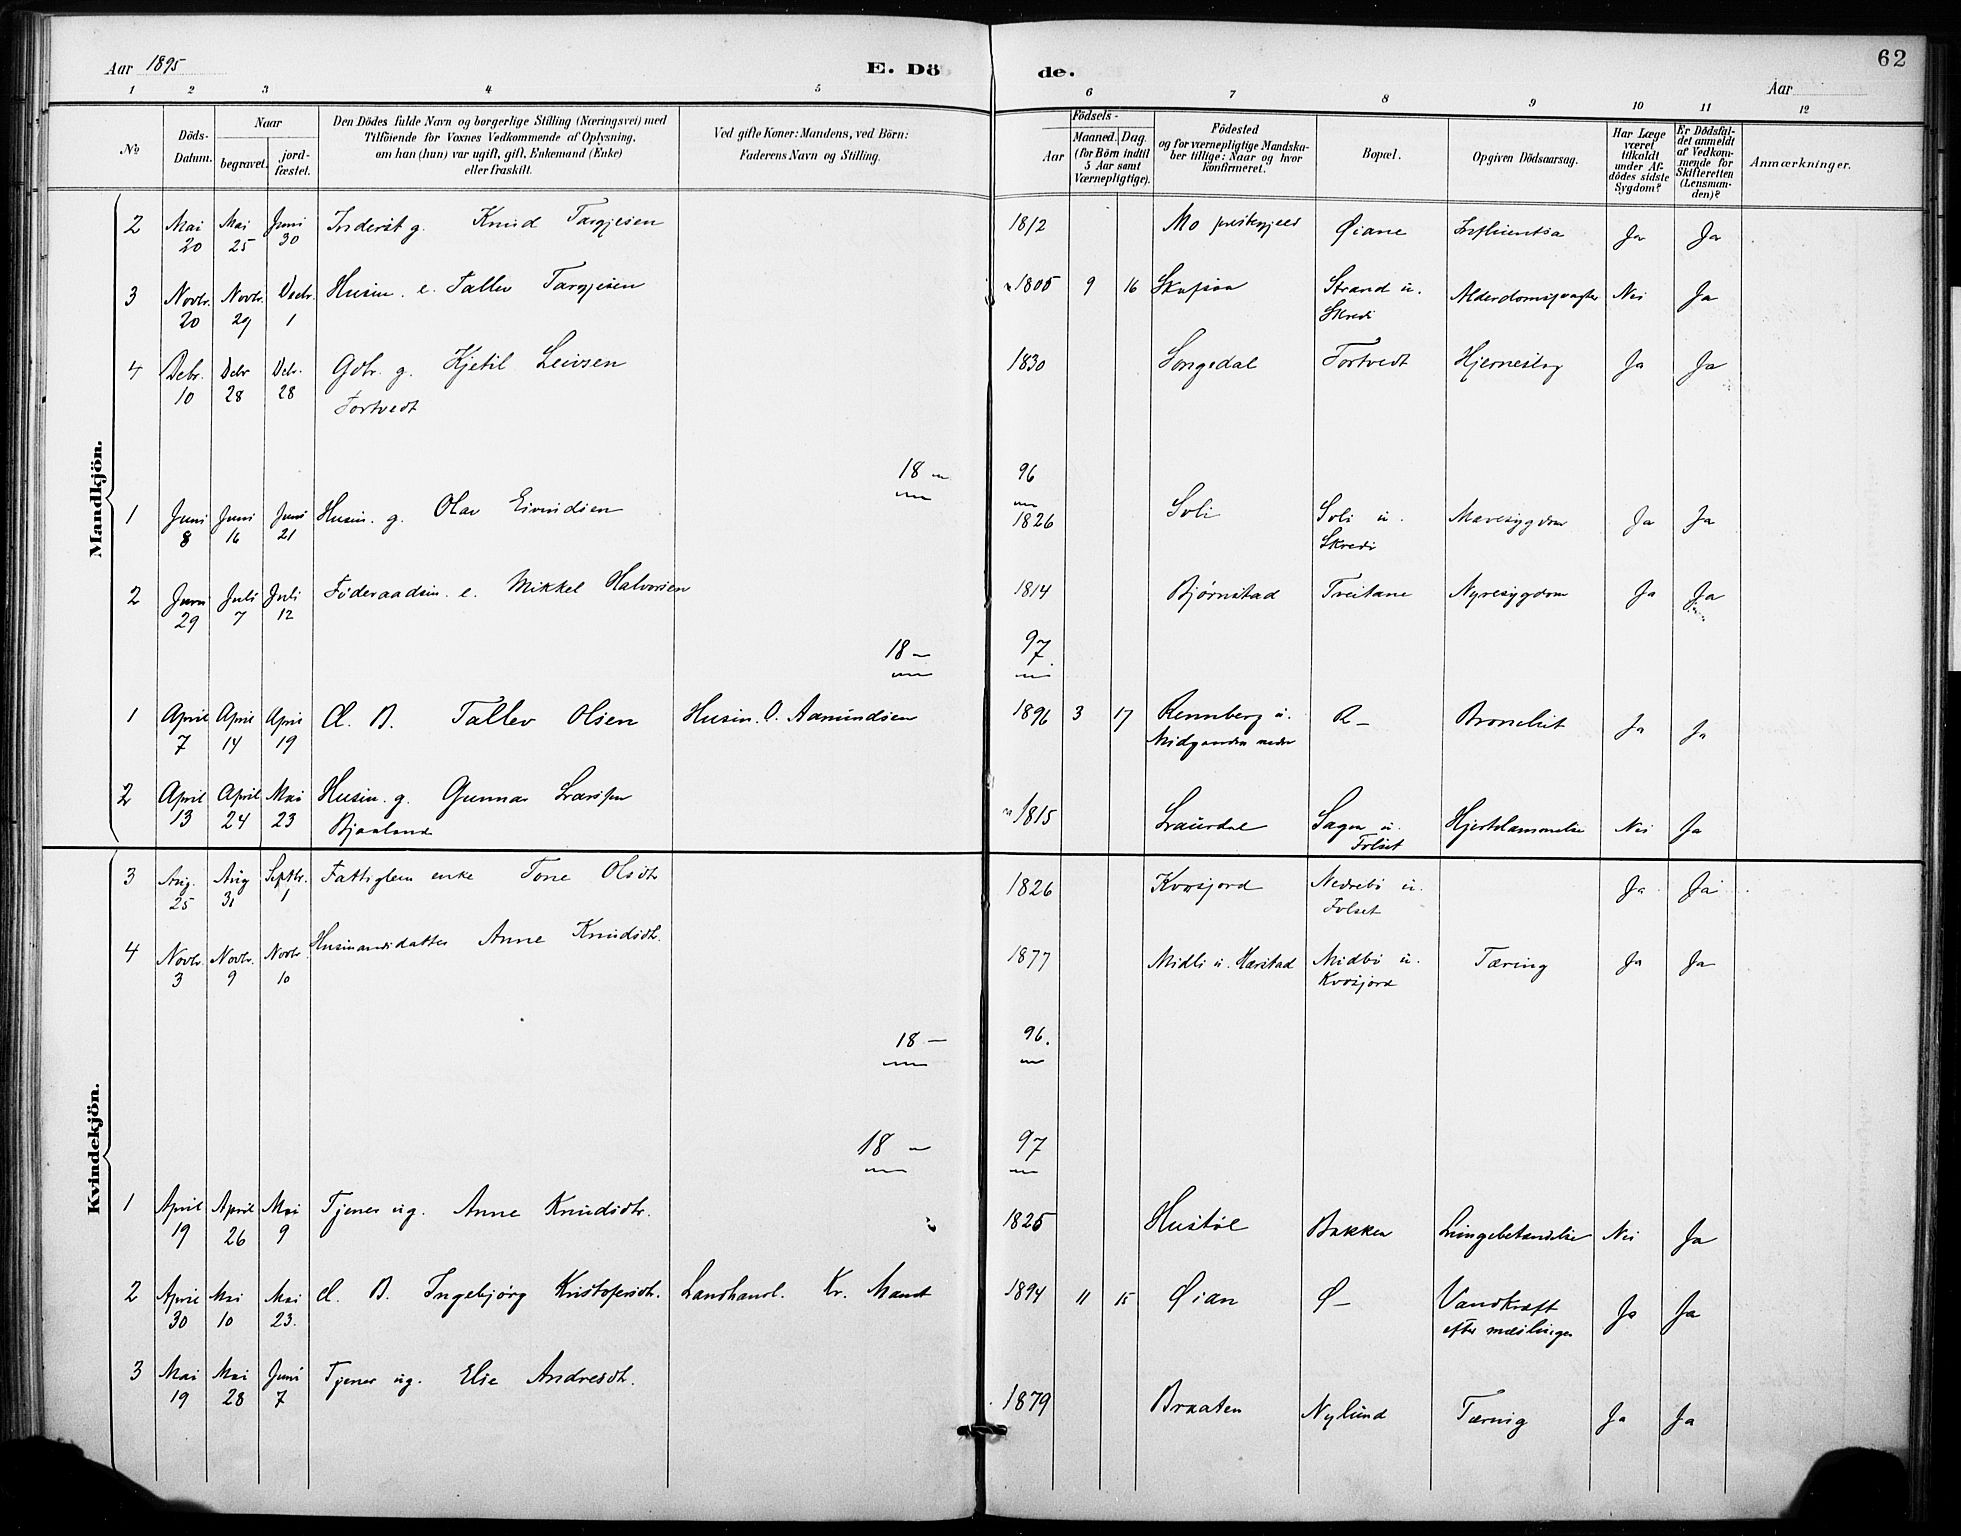 62
Aar 1895 E. Dö de. Aar
1 2 3 4 5 6 7 8 9 10 11 12
No
Döds-Datum.
Naar
begravet.
jord-fæstet.
Den Dödes fulde Navn og borgerlige Stilling (Næringsvei) med
Tilföiende for Voxnes Vedkommende af Oplysning,
om han (hun) var ugift, gift, Enkemand (Enke)
eller fraskilt.
Ved gifte Koner: Mandens, ved Börn:
Faderens Navn og Stilling.
Födsels-
Aar
Maaned. Dag.
(for Börn indtil
5 Aar samt
Værnepligtige).
Födested
og for værnepligtige Mandska-
ber tillige: Naar og hvor
konfirmeret.
Bopæl.
Opgiven Dödsaarsag.
Har Læge
været
tilkaldt
under Af-
dödes sidste
Sygdom?
Er Dödsfal-
det anmeldt
af Vedkom-
mende for
Skifteretten
(Lensman-
den)?
Anmærkninger.
Mandkjön.
2 Mai 20 Mai 25 Juni 30 Inderst g. Knud Targjesen 1812 Mo Øiane Influentsa Ja Ja
3 Novbr. 20 Novbr. 29 Decbr. 1 Husm. e. Tallev Targjesen 1805 9 16 Skafsaa Strand u. Skredi Nei Ja
4 Debr. 10 Debr 28 Debr. 28 Gdbr. g. Kjetil Leivsen
Tortvedt 1830 Songedal Tortvedt Hjerneslag Ja Ja
18 96
1 Juni 8 Juni 16 Juni 21 Husm. g. Olav Eivindsen 1826 Soli Soli u. Skredi Mavesygdom Ja Ja
2 Juni 29 Juli 7 Juli 12 Föderaadsm. e. Mikkel Halvorsen 1814 Bjørnstad Treitane Nyresygdom Ja Ja
18 — 97.
1 April 7 April 14 April 19 Æ. B. Tallev Olsen Husm. O. Aamundsen 1896 3 17 Rennberg u. R — Bronchit Ja Ja
2 April 13 April 24 Mai 23 Husm. g. Gunnar
Bjaaland 1815 Laurdal Sagen u. Folset Hjertelammelse Nei Ja
Kvindekjön.
3 Aug. 25 Aug 31 Septbr. 1 Fattiglem enke Tone Olsdtr 1826 Kvosjord Nedrebö u. Folset Ja Ja
4 Novbr. 3 Novbr. 9 Novbr 10 Husmandsdatter Anne Knudsdtr. 1877 Midli u. Harstad Midbö u. Kvosjord Tæring Ja Ja
18 — 96.
18 — 97
1 April 19 April 26 Mai 9 Tjener ug. Anne Knudsdtr. 1825 Hustöl Bakken Lungebetændelse Nei Ja
2 April 30 Mai 10 Mai 23. Æ. B. Ingebjörg Kristofersdtr. Landhandl. Kr. Mandt 1894 11 15 Øian Ø — Vandkraft
efter mæslinger Ja Ja
3 Mai 19 Mai 28 Juni 7 Tjener ug. Else Andresdtr. 1879 Braaten Nylund Tæring Ja Ja